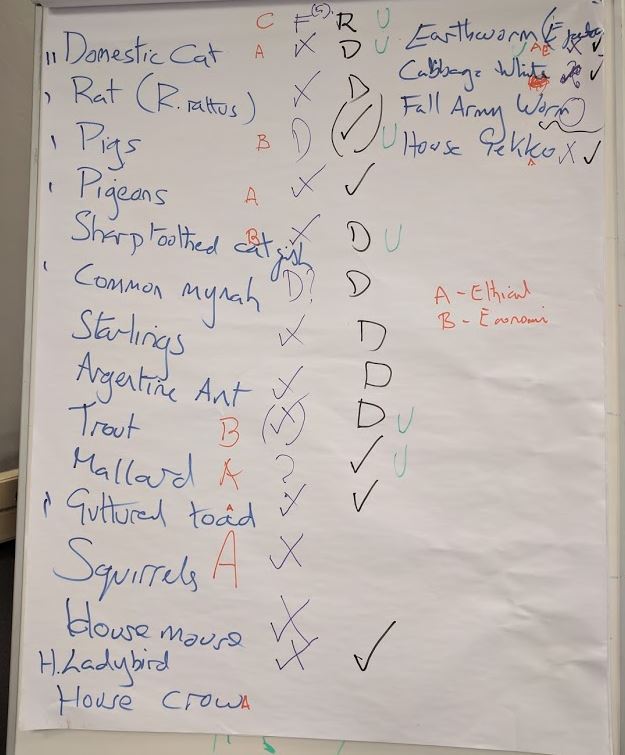 C F(S). R U
" Domestic Cat A X D U
Rat (R. rattus) X D
Pigs B D (✓) U
Pigeons A X ✓
Sharptoothed catfish B X D U
Common mynah D? D
Starlings X D
Argentine Ant X D
Trout B (X) D U
Mallard A ? ✓ U
Guttural toad A X ✓
Squirrels A X
House mouse X
H. Ladybird X ✓
House crow A
Earthworm (
U AE X ✓
Cabbage White ✓
Fall Army Worm
House Gekko A X ✓
A - Ethical
B - Economi